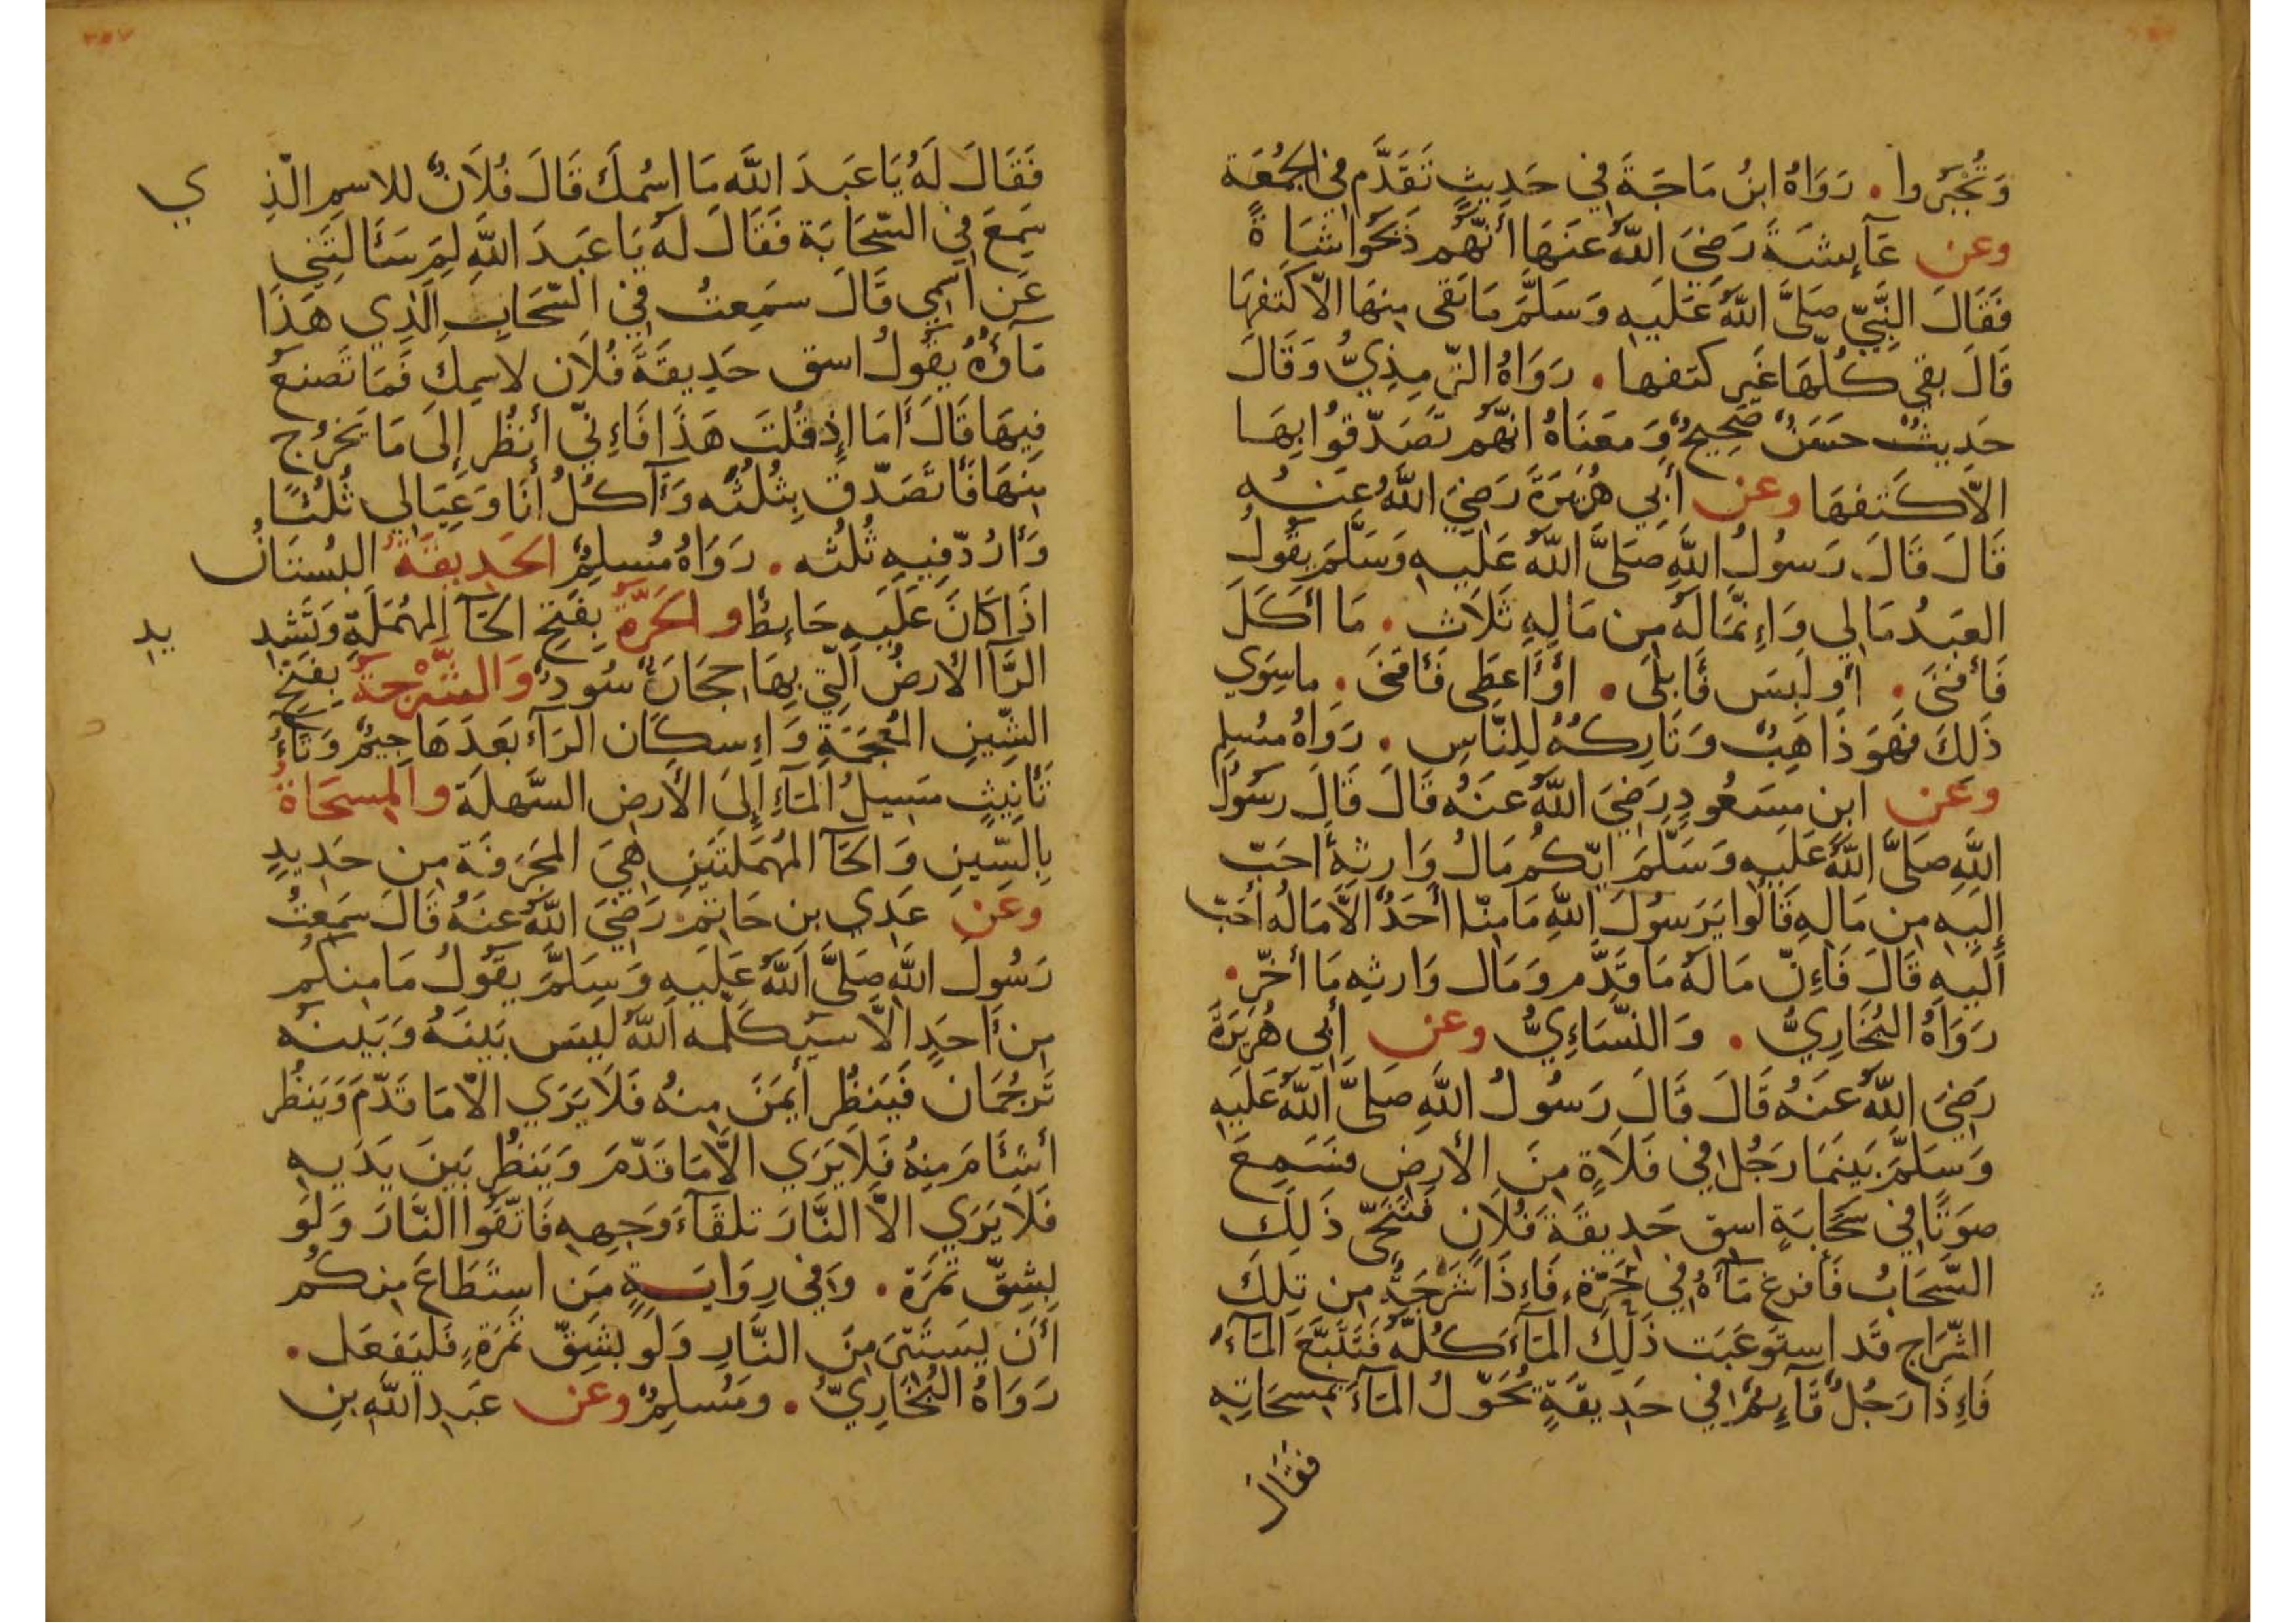 وَتُجْبَرُوا. رَوَاهُ ابنُ مَاجَةَ في حَدِيثٍ تَقَدَّم في الجُمُعَةِ
وعن عَآيِشَةَ رَضِيَ اللَّهُ عَنهَا أَنَّهُم ذَبَحُوا شَاةً
فَقَالَ النَّبِيّ صَلَّى اللَّهُ عَلَيهِ وَسَلَّمَ مَا بَقى مِنهَا الاّ كَتفهَا
قَالَ بقي كُلّهَا غَير كتفها. رَوَاهُ التّرمِذِيُّ وَقَالَ
حَدِيثٌ حَسَنٌ صَحِيحٌ وَمَعنَاهُ انَّهُم تَصَدَّقُوا بِهَا
الاّ كَتِفهَا وعن أَبِي هُرَيرَةَ رَضِيَ اللَّهُ عنهُ
قَالَ قَالَ رَسُولُ اللَّهِ صَلَّى اللَّهُ عَلَيهِ وَسَلَّمَ يقُولُ
العَبدُ مَالِي وَإِنَّمَا لَهُ مِن مَالِهِ ثَلَاثٍ. مَا أَكَلَ
فَأَفنَى. أَو لَبِسَ فَأَبلَى. أَو أَعطَى فَأَقنَى. ما سِوَي
ذَلِكَ فَهوَ ذَاهِبٌ وَتَارِكُهُ لِلنَّاسِ. رَوَاهُ مُسلِم
وعَن ابنِ مَسعُودٍ رَضِيَ اللَّهُ عَنهُ قَالَ قَالَ رسُولُ
اللَّهِ صَلَّى اللَّهُ عَلَيهِ وَسَلَّمَ ايّكُم مَالُ وَارِثِهِ احَبّ
إِلَيهِ مِن مَالِهِ قَالُوا يَرَسُولَ اللَّهِ مَا مِنّا أَحَدٌ الاَّ مَالُهُ احَبّ
أَلَيهِ قَالَ فَإِنّ مَالَهُ مَا قَدَّم وَمَال وَارِثِه مَا أَخّر.
رَوَاهُ البُخَارِيُّ. وَالنّسَاءِيُّ وعن أَبِى هُرَيرَةَ
رَضِيَ اللَّهُ عَنهُ قَالَ قَالَ رَسُولُ اللَّهِ صَلَّى اللَّهُ عَلَيهِ
وَسَلَّمَ بَينَمَا رَجُل في فَلَاةٍ مِنَ الأَرضِ فَسَمِعَ
صوَتًا في سَحَابَةٍ اسق حَدِيقَةَ فُلَانٍ فَتَنَحَّى ذَلِكَ
السَّحَابُ فَأفرغ مَآهُ في حَرَّةٍ، فَإِذَا شَرْجَةٌ مِن تِلكَ
الشّرَاجِ قَد استَوعَبَت ذَلِكَ المَآءَ كُلَّهُ فَتَتَبَّعَ المَآءَ
فَإِذَا رَجُلٌ قَآئِمٌ في حَدِيقَةٍ يُحَوّلُ المَآءَ بِمِسحَاتِهِ
فقَالَ
فَقَالَ لَهُ يَا عَبدَ اللَّهِ مَا اسْمكَ قَالَ فُلَانٌ للاسمِ الّذِي
سَمِعَ في السّحَابَة فَقَالَ لَهُ يَا عَبدَ اللَّهِ لِمَ سَأَلتَنِي
عَن اسمِي قَالَ سَمِعتُ في السّحَابِ الّذِي هَذَا
مَآؤهُ يقُولُ اسق حَدِيقَةَ فُلَان لاسمِكَ فَمَا تَصنعُ
فِيهَا قَالَ أَمَا إِذ قُلتَ هَذَا فَإِنّي أَنظُر إِلَى مَا يَخرُج
مِنهَا فَأَتَصَدّق بِثُلثُه وَآكُلُ أَنَا وَعِيَالِي ثُلثًا
وَأرُدّ فِيهِ ثُلثُه. رَوَاهُ مُسلِمٌ الحَدِيقَةُ البُستَانُ
اذَا كَانَ عَلَيهِ حَائِطٌ والحَرَّةُ بِفَتحِ الحَآ المهُمَلَةِ وَتَشدِيدِ
الرَّآ الأَرضُ الّتِي بِهَا حِجَارَةٌ سُودٌ وَالشَّرْجَةُ بِفَتحِ
الشّينِ المُعجَمَةِ وَإِسكَان الرّآء بَعدَهَا جِيمٌ وَتَآءُ
تَأنِيثٍ مَسِيلُ المَآءِ إِلَى الأَرضِ السَّهلَةِ والمِسحَاةُ
بِالسّينِ وَالحَآ المُهمَلَتَينِ هِيَ المجَرَفَة مِن حَدِيدٍ
وعَن عَدِي بن حَاتِمٍ رَضِيَ اللَّهُ عنهُ قَالَ سَمِعتُ
رَسُولَ اللَّهِ صَلَّى اللَّهُ عَلَيهِ وَسَلَّمَ يقُولُ مَا مِنكُم
مِن أَحَدٍ الاَّ سَيُكَلّمه اللَّهُ لَيسَ بَينَهُ وَبَينهُ
تَرجُمَان فَيَنظُر أَيمَنَ مِنهُ فَلَا يَرَي الاّ مَا قَدّمَ وَيَنظُر
أَشئَامَ مِنهُ فَلَا يَرَي الاَّ مَا قَدّمَ وَيَنظُر بَينَ يَدَيهِ
فَلَا يَرَي الاَّ النَّارَ تلقَآءَ وَجهِهِ فَاتّقُوا النَّارَ وَلَو
بِشِقّ تَمرَة. وَفي رِوَايَةٍ مَن استَطَاعَ مِنكُم
أَن يَستَتِرَ مِنَ النَّارِ وَلَو بِشِقّ تَمرَةٍ، فَليَفعَل.
رَوَاهُ البُخَارِيُّ. وَمُسلِمٌ وعن عَبدِ اللَّهِ بنِ